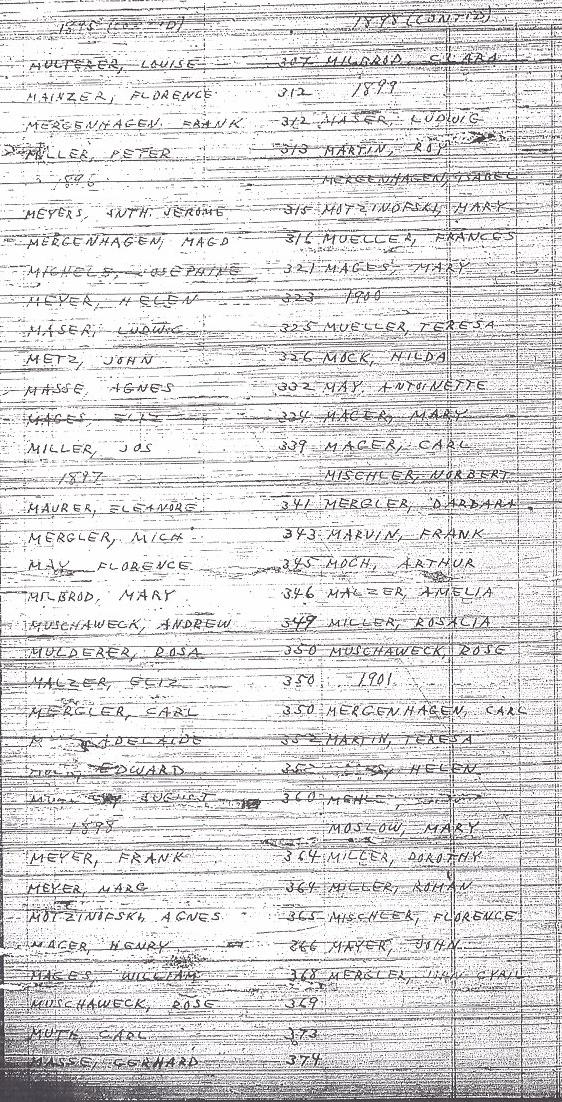 1895 (CONT'D)
MULTERER, LOUISE 307
MAINZER, FLORENCE 312
MERGENHAGEN FRANK 312
MILLER, PETER 313
1896
MEYERS, ANTH. JEROME 315
MERGENHAGEN, MAGD 316
MICHELS, JOSEPHINE 321
MEYER, HELEN 323
MASER, LUDWIG 325
METZ, JOHN 326
MASSE, AGNES 332
MAGES, ELIZ 334
MILLER, JOS 339
1897
MAURER, ELEANORE 341
MERGLER, MICH 343
MAY FLORENCE 345
MILBROD, MARY 346
MUSCHAWECK, ANDREW 349
MULDERER, ROSA 350
MALZER, ELIZ 350
MERGLER, CARL 350
ADELAIDE 352
EDWARD
AUGUST 360
1898
MEYER, FRANK 364
MEYER, MARG 364
MOTZINOFSKI, AGNES 365
MAGER, HENRY 266
MAGES, WILLIAM 368
MUSCHAWECK, ROSE 369
MUTH, CARL 373
MASSE, GERHARD 374
1898 (CONT'D)
MILBROD, CLARA
1899
MASER, LUDWIG
MARTIN, ROY
MERGENHAGEN, ISABEL
MOTZINOFSKI, MARY
MUELLER, FRANCES
MAGES, MARY
1900
MUELLER, TERESA
MOCK, HILDA
MAY, ANTOINETTE
MAGER, MARY
MAGER, CARL
MISCHLER, NORBERT
MERGLER, BARBARA
MARVIN, FRANK
MOCH, ARTHUR
MALZER, AMELIA
MILLER, ROSALIA
MUSCHAWECK, ROSE
1901
MERGENHAGEN, CARL
MARTIN, TERESA
HELEN
MOSLOW, MARY
MILLER, DOROTHY
MILLER, ROMAN
MISCHLER, FLORENCE
MAYER, JOHN
MERGLER, CYRIL